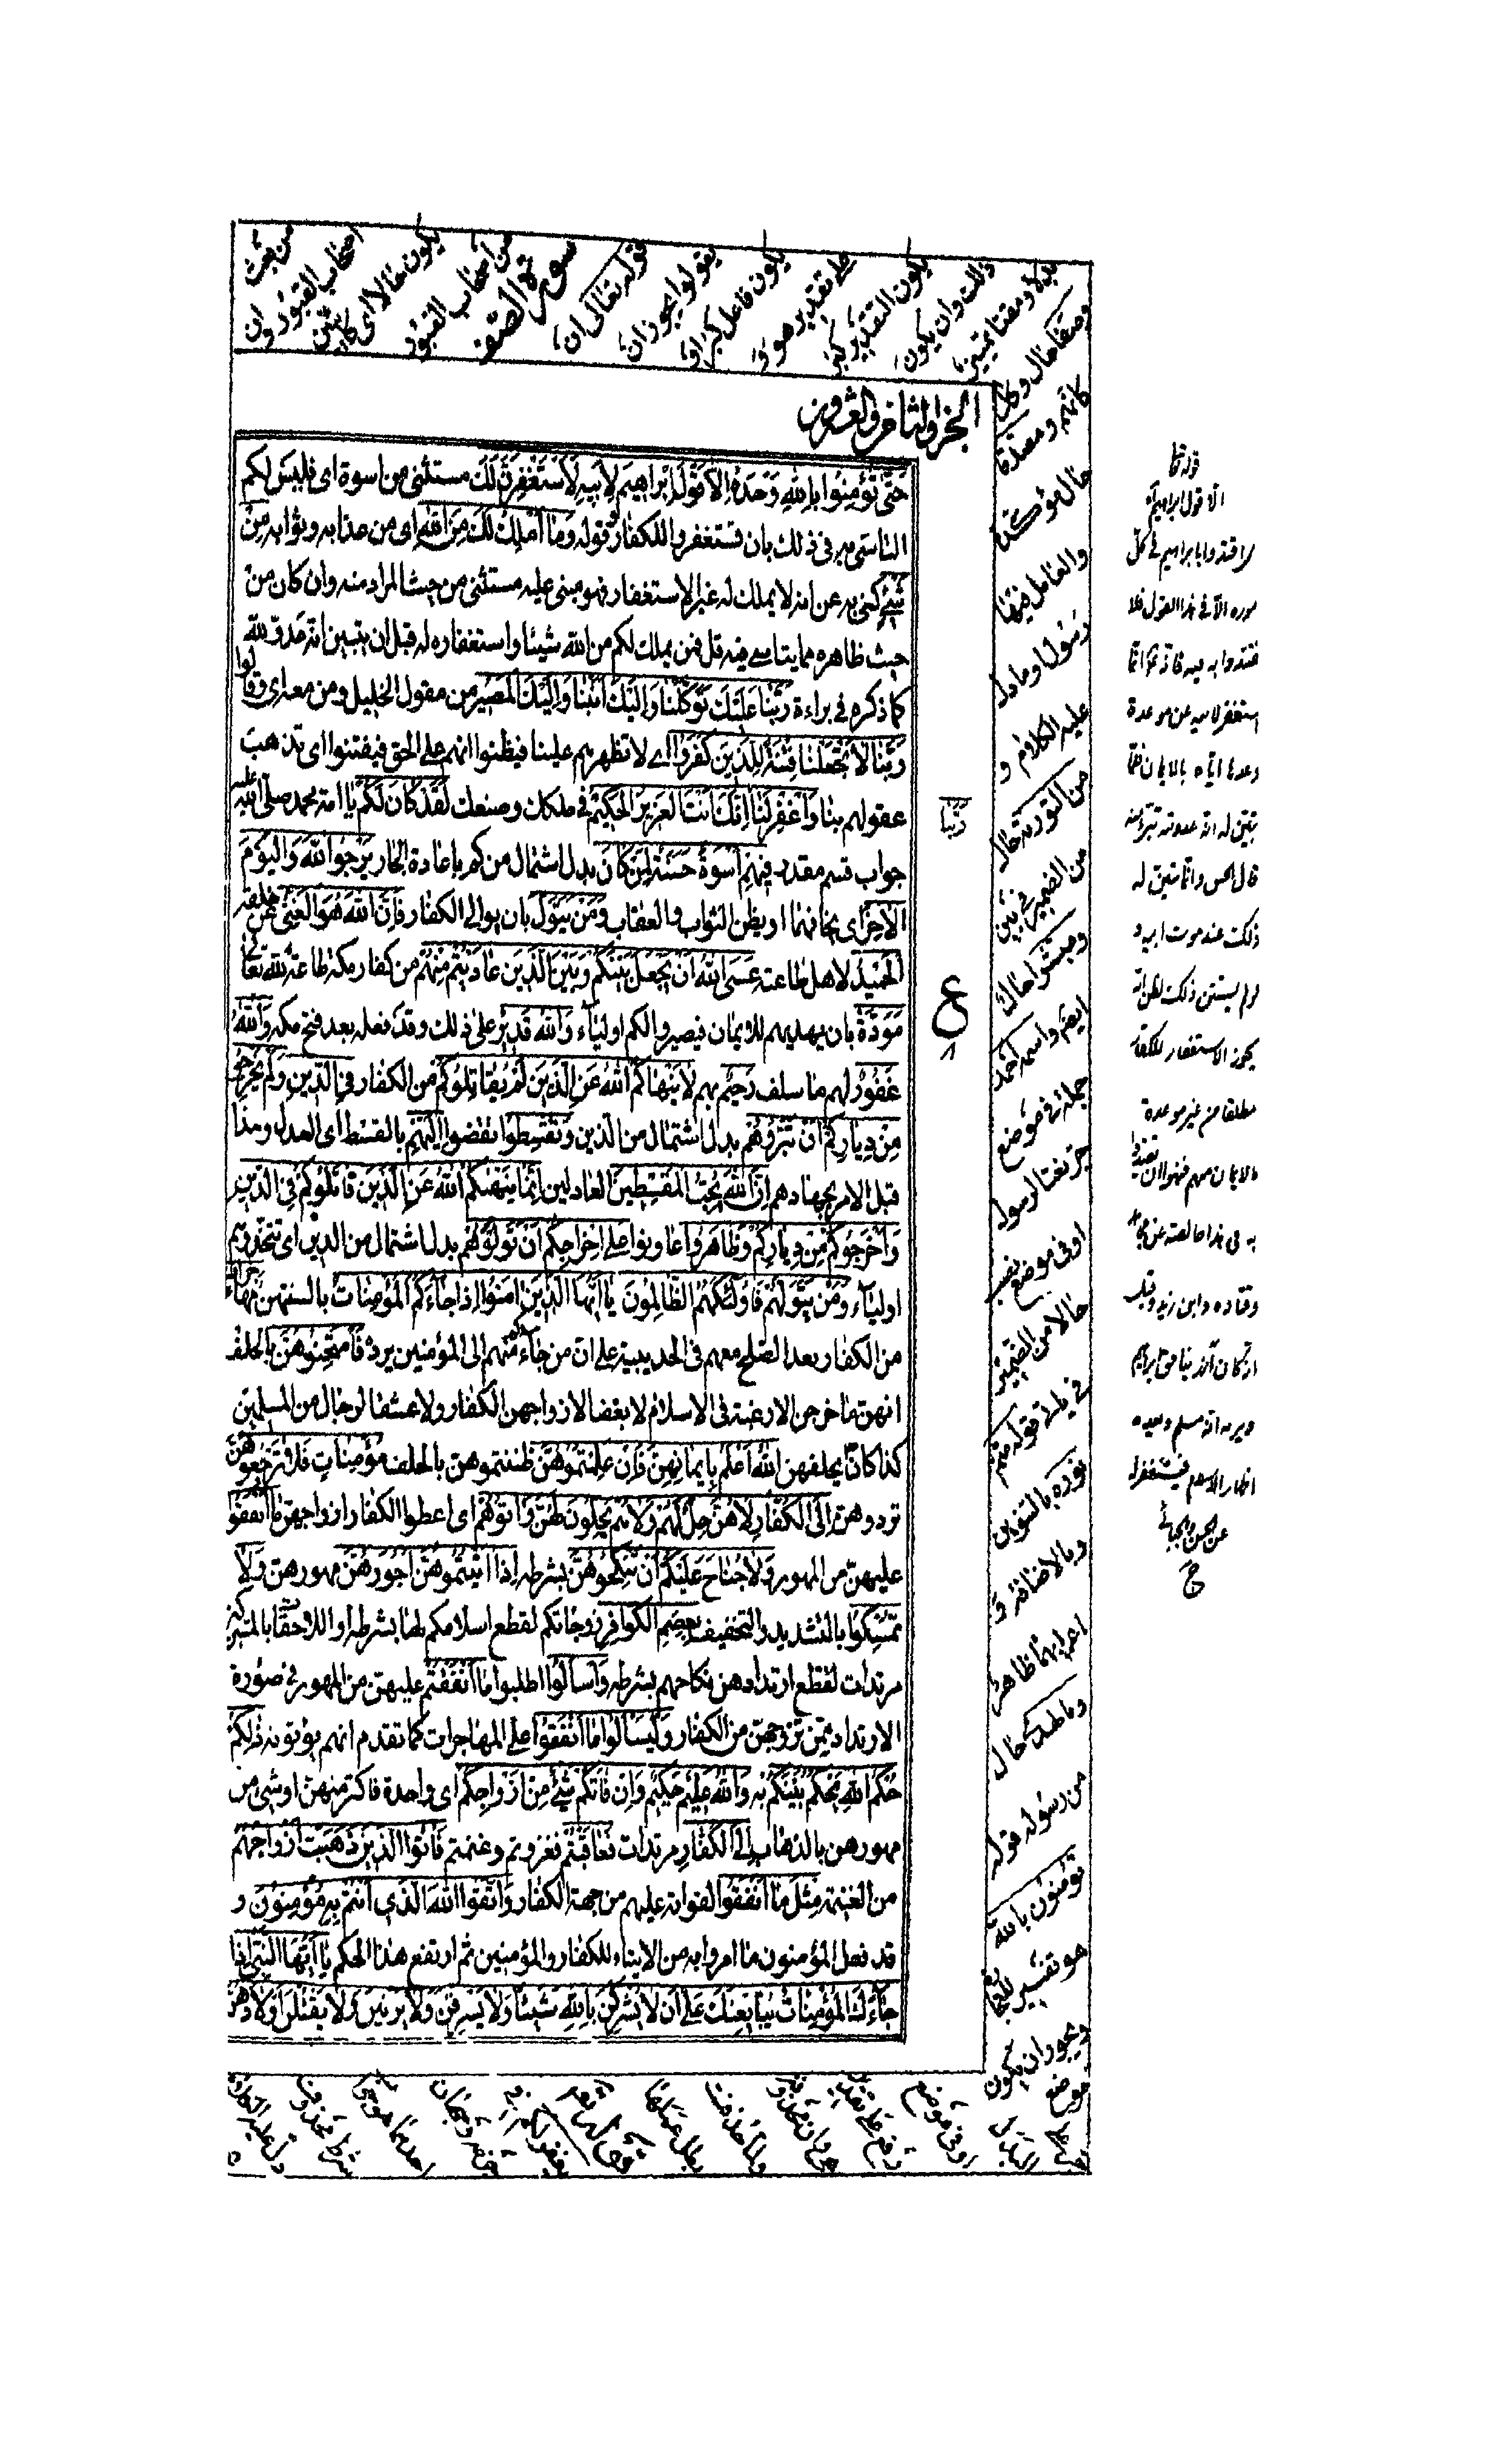 الجزء الثامن والعشرون
حَتَّى تُؤْمِنُوا بِاللهِ وَحْدَهُ إِلَّا قَوْلَ إِبْرَاهِيمَ لِأَبِيهِ لَأَسْتَغْفِرَنَّ لَكَ مستثنى من اسوة اى فليس لكم
التاسى به فى ذلك بان تستغفروا للكفار وقوله وَمَا أَمْلِكُ لَكَ مِنَ اللهِ اى من عذابه وثوابه مِنْ
شَيْءٍ كنى به عن انه لا يملك له غير الاستغفار فهو مبنى عليه مستثنى من حيث المراد منه وان كان من
حيث ظاهره مما يتاسى فيه قل فمن يملك لكم من الله شيئا واستغفاره له قبل ان يتبين انه عدو لله
كما ذكره فى براءة رَبَّنَا عَلَيْكَ تَوَكَّلْنَا وَإِلَيْكَ أَنَبْنَا وَإِلَيْكَ الْمَصِيرُ من مقول الخليل ومن معه اى وقالوا
رَبَّنَا لَا تَجْعَلْنَا فِتْنَةً لِلَّذِينَ كَفَرُوا اے لا تظهرهم علينا فيظنوا انهم على الحق فيفتنوا اى تذهب
عقولهم بنا وَاغْفِرْ لَنَا رَبَّنَا إِنَّكَ أَنْتَ الْعَزِيزُ الْحَكِيمُ فى ملكك وصنعك لَقَدْ كَانَ لَكُمْ يا امة محمد صلى الله عليه
جواب قسم مقدر فِيهِمْ أُسْوَةٌ حَسَنَةٌ لِمَنْ كَانَ بدل اشتمال من كم باعادة الجار يَرْجُو اللهَ وَالْيَوْمَ
الْآخِرَ اى يخافهما او يظن الثواب والعقاب وَمَنْ يَتَوَلَّ بان يوالى الكفار فَإِنَّ اللهَ هُوَ الْغَنِيُّ عن خلقه
الْحَمِيدُ لاهل طاعته عَسَى اللهُ أَنْ يَجْعَلَ بَيْنَكُمْ وَبَيْنَ الَّذِينَ عَادَيْتُمْ مِنْهُمْ من كفار مكة طاعة لله تعالى
مَوَدَّةً بان يهديهم للايمان فيصيروا لكم اولياء وَاللهُ قَدِيرٌ على ذلك وقد فعله بعد فتح مكة وَاللهُ
غَفُورٌ لهم ما سلف رَحِيمٌ بهم لَا يَنْهَاكُمُ اللهُ عَنِ الَّذِينَ لَمْ يُقَاتِلُوكُمْ من الكفار فِي الدِّينِ وَلَمْ يُخْرِجُوكُمْ
مِنْ دِيَارِكُمْ أَنْ تَبَرُّوهُمْ بدل اشتمال من الذين وَتُقْسِطُوا تفضوا إِلَيْهِمْ بالقسط اى العدل وهذا
قبل الامر بجهادهم إِنَّ اللهَ يُحِبُّ الْمُقْسِطِينَ العادلين إِنَّمَا يَنْهَاكُمُ اللهُ عَنِ الَّذِينَ قَاتَلُوكُمْ فِي الدِّينِ
وَأَخْرَجُوكُمْ مِنْ دِيَارِكُمْ وَظَاهَرُوا عاونوا عَلَى إِخْرَاجِكُمْ أَنْ تَوَلَّوْهُمْ بدل اشتمال من الذين اى تتخذوهم
اولياء وَمَنْ يَتَوَلَّهُمْ فَأُولَئِكَ هُمُ الظَّالِمُونَ يَا أَيُّهَا الَّذِينَ آمَنُوا إِذَا جَاءَكُمُ الْمُؤْمِنَاتُ بالسنتهن مُهَاجِرَاتٍ
من الكفار بعد الصلح معهم فى الحديبية على ان من جاء منهم الى المؤمنين يرد فَامْتَحِنُوهُنَّ بالحلف
انهن ما خرجن الا رغبة فى الاسلام لا بغضا لازواجهن الكفار ولا عشقا لرجال من المسلمين
كذا كان يحلفهن اللهُ أَعْلَمُ بِإِيمَانِهِنَّ فَإِنْ عَلِمْتُمُوهُنَّ ظننتموهن بالحلف مُؤْمِنَاتٍ فَلَا تَرْجِعُوهُنَّ
تردوهن إِلَى الْكُفَّارِ لَا هُنَّ حِلٌّ لَهُمْ وَلَا هُمْ يَحِلُّونَ لَهُنَّ وَآتُوهُمْ اى اعطوا الكفار ازواجهن مَا أَنْفَقُوا
عليهن من المهور وَلَا جُنَاحَ عَلَيْكُمْ أَنْ تَنْكِحُوهُنَّ بشرطه إِذَا آتَيْتُمُوهُنَّ أُجُورَهُنَّ مهورهن وَلَا
تُمَسِّكُوا بالتشديد والتخفيف بِعِصَمِ الْكَوَافِرِ زوجاتكم لقطع اسلامكم لها بشرطه او اللاحقات بالمشركين
مرتدات لقطع ارتدادهن نكاحهم بشرطه وَاسْأَلُوا اطلبوا مَا أَنْفَقْتُمْ عليهن من المهور فى صورة
الارتداد ممن تزوجهن من الكفار وَلْيَسْأَلُوا مَا أَنْفَقُوا على المهاجرات كما تقدم انهم يؤتونه ذَلِكُمْ
حُكْمُ اللهِ يَحْكُمُ بَيْنَكُمْ به وَاللهُ عَلِيمٌ حَكِيمٌ وَإِنْ فَاتَكُمْ شَيْءٌ مِنْ أَزْوَاجِكُمْ اى واحدة فاكثر منهن او شئ من
مهورهن بالذهاب إِلَى الْكُفَّارِ مرتدات فَعَاقَبْتُمْ فغزوتم وغنمتم فَآتُوا الَّذِينَ ذَهَبَتْ أَزْوَاجُهُمْ
من الغنيمة مِثْلَ مَا أَنْفَقُوا لفواته عليهم من جهة الكفار وَاتَّقُوا اللهَ الَّذِي أَنْتُمْ بِهِ مُؤْمِنُونَ و
قد فعل المؤمنون ما امروا به من الايتاء للكفار والمؤمنين ثم ارتفع هذا الحكم يَا أَيُّهَا النَّبِيُّ إِذَا
جَاءَكَ الْمُؤْمِنَاتُ يُبَايِعْنَكَ عَلَى أَنْ لَا يُشْرِكْنَ بِاللهِ شَيْئًا وَلَا يَسْرِقْنَ وَلَا يَزْنِينَ وَلَا يَقْتُلْنَ أَوْلَادَهُنَّ
رَبَّنَا
ع
٨
من بعث
اصحاب القبور وان
يكون حالا اى كائنين
من اصحاب القبور
سورة الصف
قوله تعالى ان
يقولوا يجوز ان
يكون فاعل كبر او
على تقدير هو و
يكون التقدير كبر
ذلك وان يكون
بدلا ومقتا تمييز
وصفا حال وكذا
كانهم ومصدقا
حال مؤكدة
والعامل فيها
رسول او ما دل
عليه الكلام و
من التورية حال
من الضمير فى بين
ومبشرا حال
ايضا واسمه احمد
جملة فى موضع
جر نعتا لرسول
او فى موضع نصب
حالا من الضمير
فى ياتى قوله متم
نوره بالتنوين
وبالاضافة و
اعرابهما ظاهر
من رسوله قوله
تؤمنون بالله
هو تفسير للتجارة
ويجوز ان يكون
قوله تعالى
الا قول ابراهيم
استغفر لابيه عن موعدة
وعدها اياه بالايمان فلما
تبين له انه عدو لله تبرأ منه
قال الحسن وانما تبين له
ذلك عند موت ابيه و
لو لم يستثن ذلك لظن انه
يجوز الاستغفار للكفار
مطلقا من غير موعدة
وقتادة وابن زيد وقيل